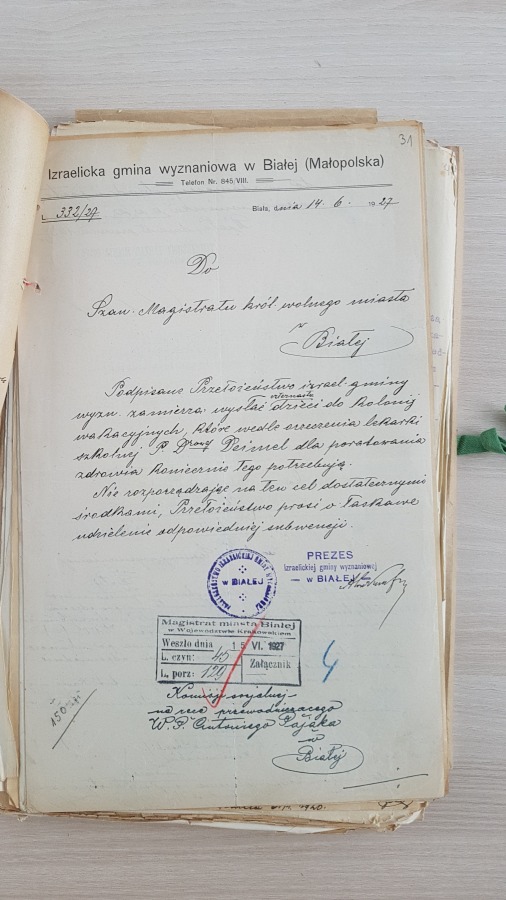 31
Izraelicka gmina wyznaniowa w Białej (Małopolska)
Telefon Nr. 845/VIII.
L. 332/27
Biała, dnia 14. 6. 1927
Do
Szan. Magistratu król. wolnego miasta
w
Białej
Podpisane Przełożeństwo izrael. gminy
wyzn. zamierza wysłać dzieci do kolonij
wakacyjnych, które wedle orzeczenia lekarki
szkolnej P. Drowej Deimel dla poratowania
zdrowia koniecznie tego potrzebują.
Nie rozporządzając na ten cel dostatecznymi
środkami, Przełożeństwo prosi o łaskawe
udzielenie odpowiedniej subwencji.
w BIAŁEJ
PREZES
Izraelickiej gminy wyznaniowej
— w BIAŁEJ —
Magistrat miasta Białej
w Województwie Krakowskiem
Weszło dnia 15 VI. 1927
L. czyn: 45
Załącznik
L. porz: 129
Komisji socjalnej
na ręce przewodniczącego
W. P. Antoniego Pająka
w
Białej